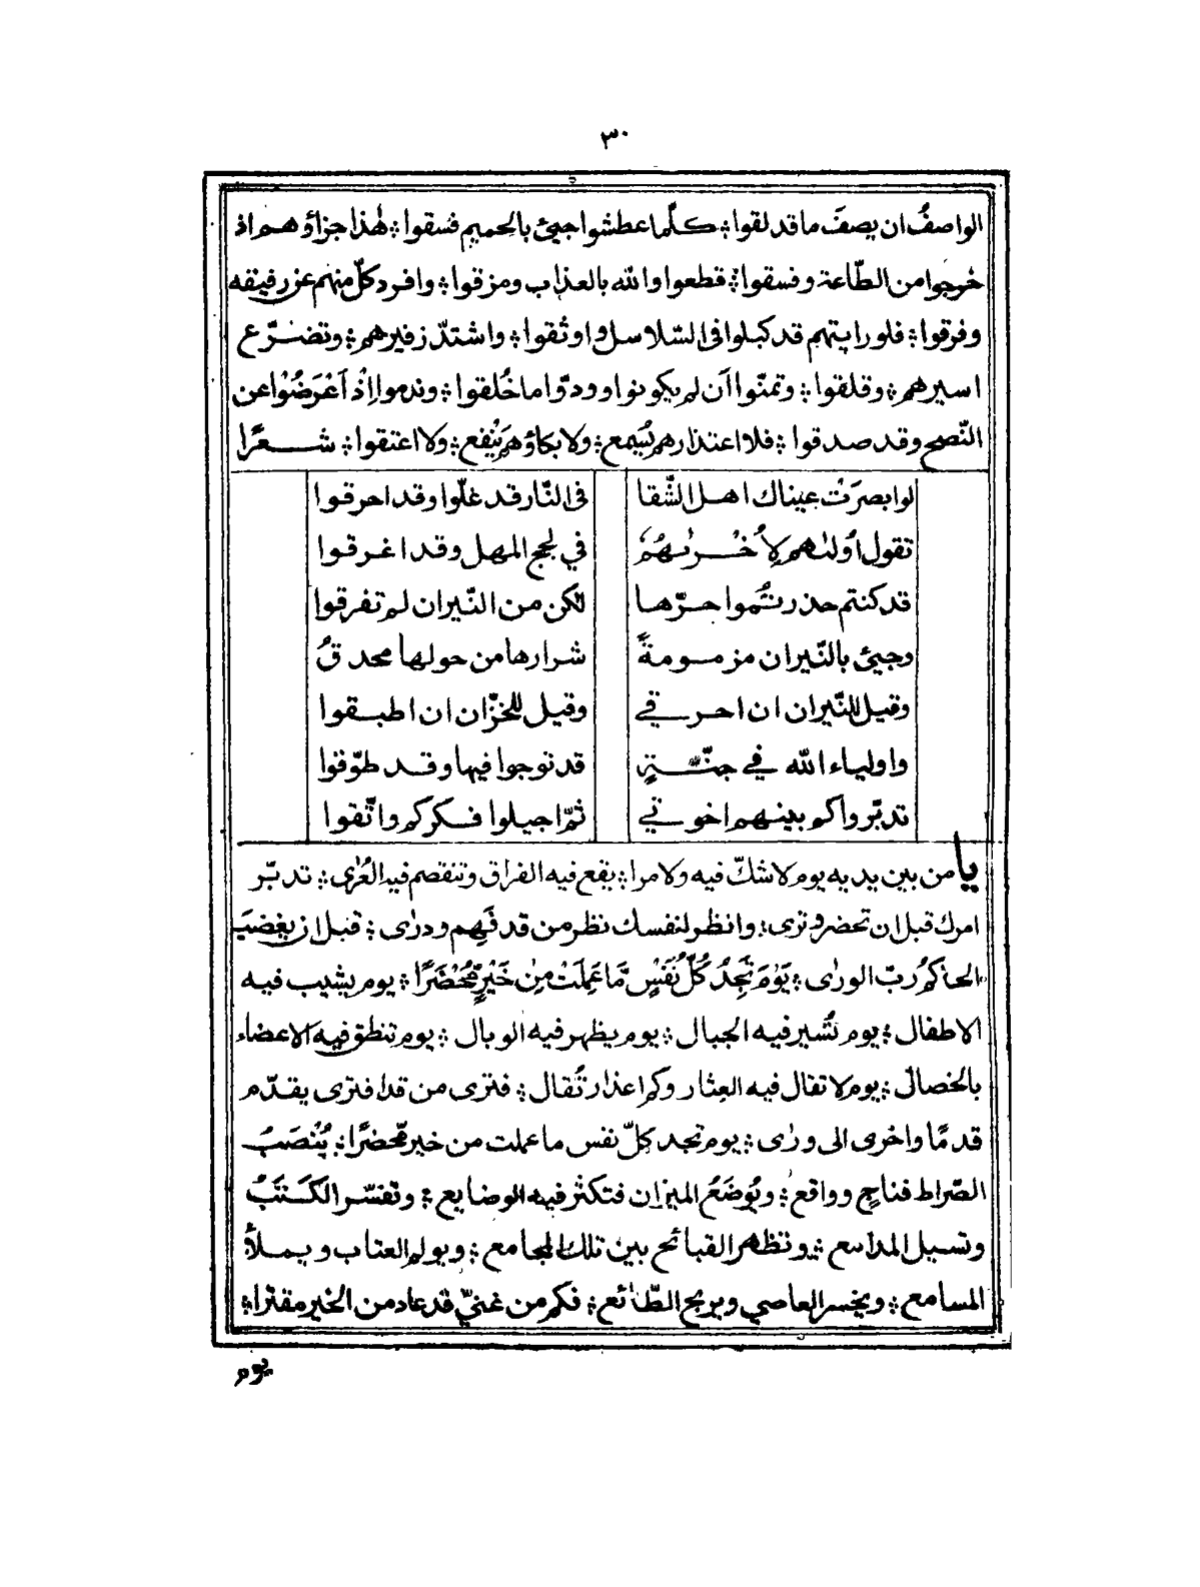 ٣٠
الواصفُ ان يصفَ ما قد لقوا ؞ كلّما عطشوا جيئ بالحميم فسُقوا ؞ هٰذا جزاؤهم اذ
خرجوا من الطّاعة وفسقوا ؞ قطعوا والله بالعذاب ومزقوا ؞ وافرد كلّ منهم عن رفيقه
وفرقوا ؞ فلو رايتهم قد كبلوا فى السّلاسل واوثُقوا ؞ واشتدّ زفيرهم ؞ وتضرّع
اسيرهم ؞ وقلقوا ؞ وتمنّوا اَن لم يكونوا وودّوا ما خُلقوا ؞ وندموا اِذْ اَعْرَضُوْا عن
النّصح وقد صدقوا ؞ فلا اعتذارهم يُسمع ؞ ولا بكاؤهم يَنْفع ؞ ولا اعتقوا ؞ شعرًا
لو ابصرَتْ عيناك اهل الشّقا فى النّار قد غلّوا وقد احرقوا
تقول اُولٰىهم لِاُخْرٰىهُمْ في لجج المهل وقد اغرقوا
قد كنتم حذرتُموا حرّها لٰكن من النّيران لم تفرقوا
وجيئ بالنّيران مزمومةً شرارها من حولها محدقُ
وقيل للنّيران ان احرقي وقيل للخزّان ان اطبقوا
واولياء الله في جنّةٍ قد توجوا فيها وقد طوّقوا
تدبّروا كم بينهم اخوتي ثمّ اجيلوا فكركم واتّقوا
يا من بين يديه يوم لا شكّ فيه ولا مرا ؞ يقع فيه الفراق وتنفصم فيه العُرٰى ؞ تدبّر
امرك قبل ان تحضر وترى ؞ وانظر لنفسك نظر من قد فَهِم ودرٰى ؞ قبل ان يغضبَ
الحاكمُ ربّ الورٰى ؞ يَوْمَ تَجِدُ كُلُّ نَفْسٍ مَّا عَمِلَتْ مِنْ خَيْرٍ مُّحْضَرًا ؞ يوم يشيب فيه
الاطفال ؞ يوم تُسير فيه الجبال ؞ يوم يظهر فيه الوبال ؞ يوم تنطق فيه الاعضاء
بالخصال ؞ يوم لا تقال فيه العِثار وكم اعذار تُقال ؞ فترى من قد افترى يقدّم
قدمًا واخرى الى ورٰى ؞ يوم تجد كلّ نفس ما عملت من خير مّحضرًا ؞ يُنْصَبُ
الصّراط فناجٍ وواقع ؞ ويُوضَعُ الميزان فتكثر فيه الوضايع ؞ وتفسّر الكتبُ
وتسيل المدامع ؞ وتظهر القبائح بين تلك المجامع ؞ ويولم العتاب ويملأُ
المسامع ؞ ويخسر العاصي ويربح الطّائع ؞ فكم من غنيّ قد عاد من الخير مقترا ؞
يوم